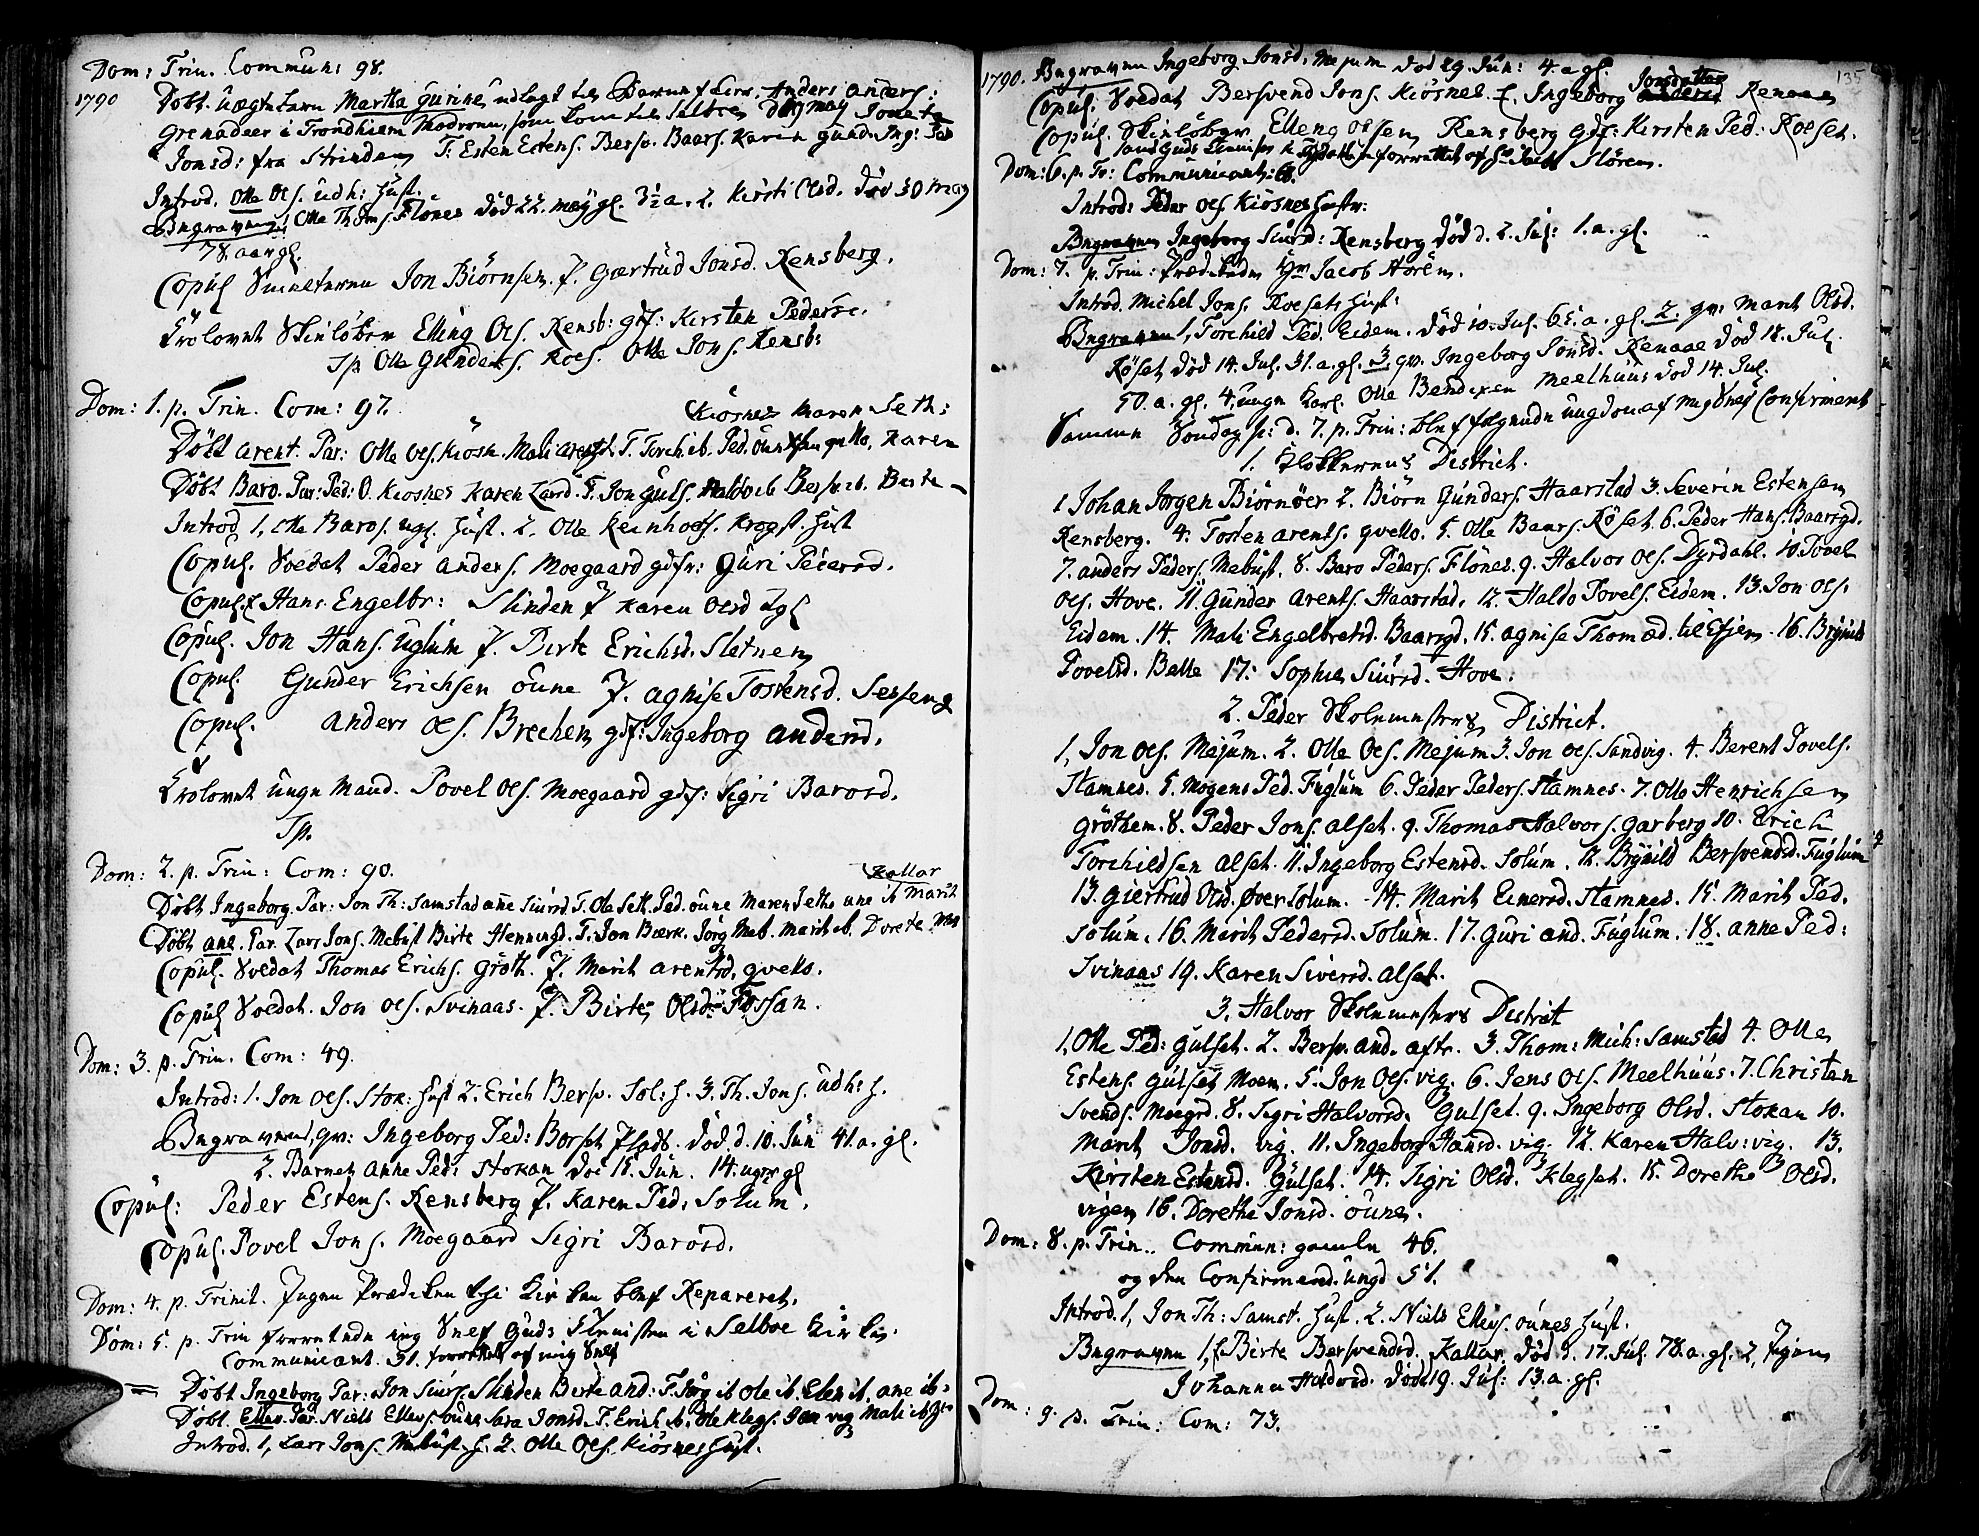 Dom: Trin. Commun: 98.
1790 Døbt uægte barn Martha Gurine, udlagt til Barnef. Anders Anders:
Grenadeer i Trondhiem Moderen, som kom til Selboe may
Jonsd: fra Strinden T: Esten Estens. Bersv. Baars. Karen Gund. Ing: Ped
Introd. Olle Ols. udh: Hust.
Begraven 1 Olle Th. Jons. Flønes død 22. may gl. 3½ a. 2. Kirsti Olsd. død 30 may
78. aar gl.
Copul. Jon Biørnsen f. Gærtrud Jonsd. Rensberg.
Trolovet Skiløber Elling Ols. Rensb: gdf: Kirsten Pedersd.
Sp. Olle Gunders. Roes. Olle Jons. Rensb:
Dom: 1. p. Trin. Com: 97. Kiøsnes Maren Seth:
Døbt Arent. Par: Olle Ols. Kiøsn. Mali Arentsd. T. Torch. ib. Ped. Qvello. Karen
Døbt Baro. Par: Ped: O. Kiosnes Karen Larsd. T. Jon Guls. Haldo ib Bersv. ib. Berte
Introd. 1, Olle Baros. Ugl. Hust. 2. Olle Reinholds. Krogst. Hust
Copul. Soldat Peder Anders. Moegaard gdf: Guri Pedersd.
Copul. Hans Engelbr: Slinden f Karen Olsd Ugl
Copul. Jon Hans. Uglum f. Birte Erichsd. Sletnen
Copul. Gunder Erichsen Oune f. Agnise Tostensd. Sesseng
Copul. Anders Ols. Brechen gdf: Ingeborg Andersd.
Trolovet unge Mand. Povel Ols. Moegaard gdf: Sigri Barosd.
Sp.
Dom: 2. p. Trin: Com: 90. Kallar
Døbt Ingeborg. Par: Jon Th: Samstad Ane Siursd. T. Ole Seth. Ped. Oune Maren Seths ane ib Marit
Døbt Ane. Par. Lars Jons. Mebust Birte Henningsd. T. Jon Bærk. Jørg Meb. Marit ib. Dorete Meb
Copul. Soldat Thomas Erichs. Grøth. f. Marit Arentsd. Qvello.
Copul Soldat. Jon Ols. Svinaas. f. Birte Olsd: Fossan.
Dom: 3. p. Trin. Com: 49.
Introd: 1. Jon Ols. Stok: Hust 2. Erich Bersv. Sol: H. 3. Th. Jons. Udh: H.
Begraven, qv: Ingeborg Ped: Borset død d. 10. Jun 41. a. gl.
2. Barnet Anne Ped: Stokan død 15. Jun. 14. uger gl
Copul: Peder Estens. Rensberg f. Karen Ped: Solum.
Copul. Povel Jons. Moegaard Sigri Barosd.
Dom: 4. p. Trinit. Ingen Prædiken thi Kirken blef Repareret.
Dom: 5. p. Trin forrettede ieg Guds Tienisten i Selboe Kirke.
Communicant. 31. forrettet af mig Self
Døbt Ingeborg Par: Jon Siurs. Slinden Berte And: T. Jørg ib Ole ib. Elen ib. Ane ib.
Døbt. Ellev. Par. Niels Ellevs. Oune Sara Jonsd. T. Erich ib. Ole Klegs. Jon Vig Mali ib
Introd. 1, Lars Jons. Mebust. H. 2. Olle Ols. Kiøsnes Hust.
135
1790. Begraven Ingeborg Jonsd. Mejum død 29. Jun: 4. a gl.
Copul. Soldat Bersvend Jons. Kiøsnes f. Ingeborg Jonsdatter Renaae
Copul. Skiløber Elleng Olsen Rensberg gdf: Kirsten Ped: Roeset.
samt Guds Tienisten i forrettet af Hr Jacob Støren.
Dom: 6. p. Tr: Communicant: 6.
Introd: Peder Ols Kiøsnes Hustr:
Begraven Ingeborg Siursd: Rensberg død d. 2. Jul: 1. a. gl.
Dom: 7. p. Trin: Prædikede Hr Jacob Støren.
Introd. Michel Jons. Roesets Hust:
Begraven 1, Torchild Ped. Eidem. død 10. Jul. 65. a. gl. 2. qv: Marit Olsd.
Røset død 14. Jul. 31. a. gl. 3 qv. Ingeborg Jonsd. Renaae død 18. Jul.
50. a. gl. 4. unge Karl. Olle Bendixen Meelhuus død 14. Jul.
Samme Søndag p: d. 7. p. Trin: blef følgende ungdom af mig Self Confirmert
1. Klokkerens District.
1 Johan Jørgen Biørnøer 2. Biørn Gunders. Haarstad 3. Severin Estensen
Rensberg. 4. Tosten Arents. Qvello. 5. Olle Baars. Røset 6. Peder Hans. Baarsgd.
7. Anders Peders. Mebust. 8. Baro Peders. Flønes. 9. Halvor Ols. Dyrdahl. 10. Povel
Ols. Hove. 11. Gunder Arents. Haarstad. 12. Haldo Povels. Eidem. 13. Jon Ols.
Eidem. 14. Mali Engelbretsd. Baarsgd. 15. Agnise Thom æd. til Efiem. 16. Brynild
Povelsd. Belle 17. Sophie Siursd. Hove.
2. Peder Skolemesters District.
1, Jon Ols. Mejum. 2. Olle Ols. Mejum 3. Jon Ols. Sandvig. 4. Berent Povels.
Stamnes. 5. Mogens Ped. Fuglum 6. Peder Peders. Stamnes. 7. Olle Henrichsen
Grøthem. 8. Peder Jons. Alset. 9. Thomas Halvors. Garberg 10. Erich
Torchildsen Alset. 11. Ingeborg Estensd. Solum. 12. Brynild Bersvendsd. Fuglum
13. Giertrud Olsd. Øver Solum. 14. Marit Einersd. Stamnes. 15. Marit Ped.
Solum. 16. Marit Pedersd. Solum. 17. Guri And. Fuglum. 18. Anne Ped:
Svinaas 19. Karen Siversd. Alset.
3. Halvor Skolemesters District
1, Olle Ped: Gulset. 2. Bersv. And. Aftr. 3. Thom: Mich: Samstad 4. Olle
Estens. Gulset Moen. 5. Jon Ols. Vig. 6. Jens Ols. Meelhuus. 7. Christen
Svends. Moegrd. 8. Sigri Halvorsd. Gulset. 9. Ingeborg Olsd. Stokan 10.
Marit Jonsd. Vig. 11. Ingeborg Hansd. Vig. 12. Karen Halv: Vig. 13.
Kirsten Estensd. Gulset. 14. Sigri Olsd. Klegset. 15. Dorethe Olsd.
Vigen 16. Dorethe Jonsd. Ounes.
Dom: 8. p. Trin.. Commun: gamle 46.
og den Confirmand. ungd 51.
Introd. 1, Jon Th: Samst. Hust. 2. Niels Ellevs. Ounes Hust.
Begraven 1, Birte Bersvendsd. Kallar død d. 17. Jul. 78. a. gl. 2, Pigen
Johanna Haldosd. død 19. Jul: 13. a. gl.
Dom: 9. p. Trin: Com: 73.